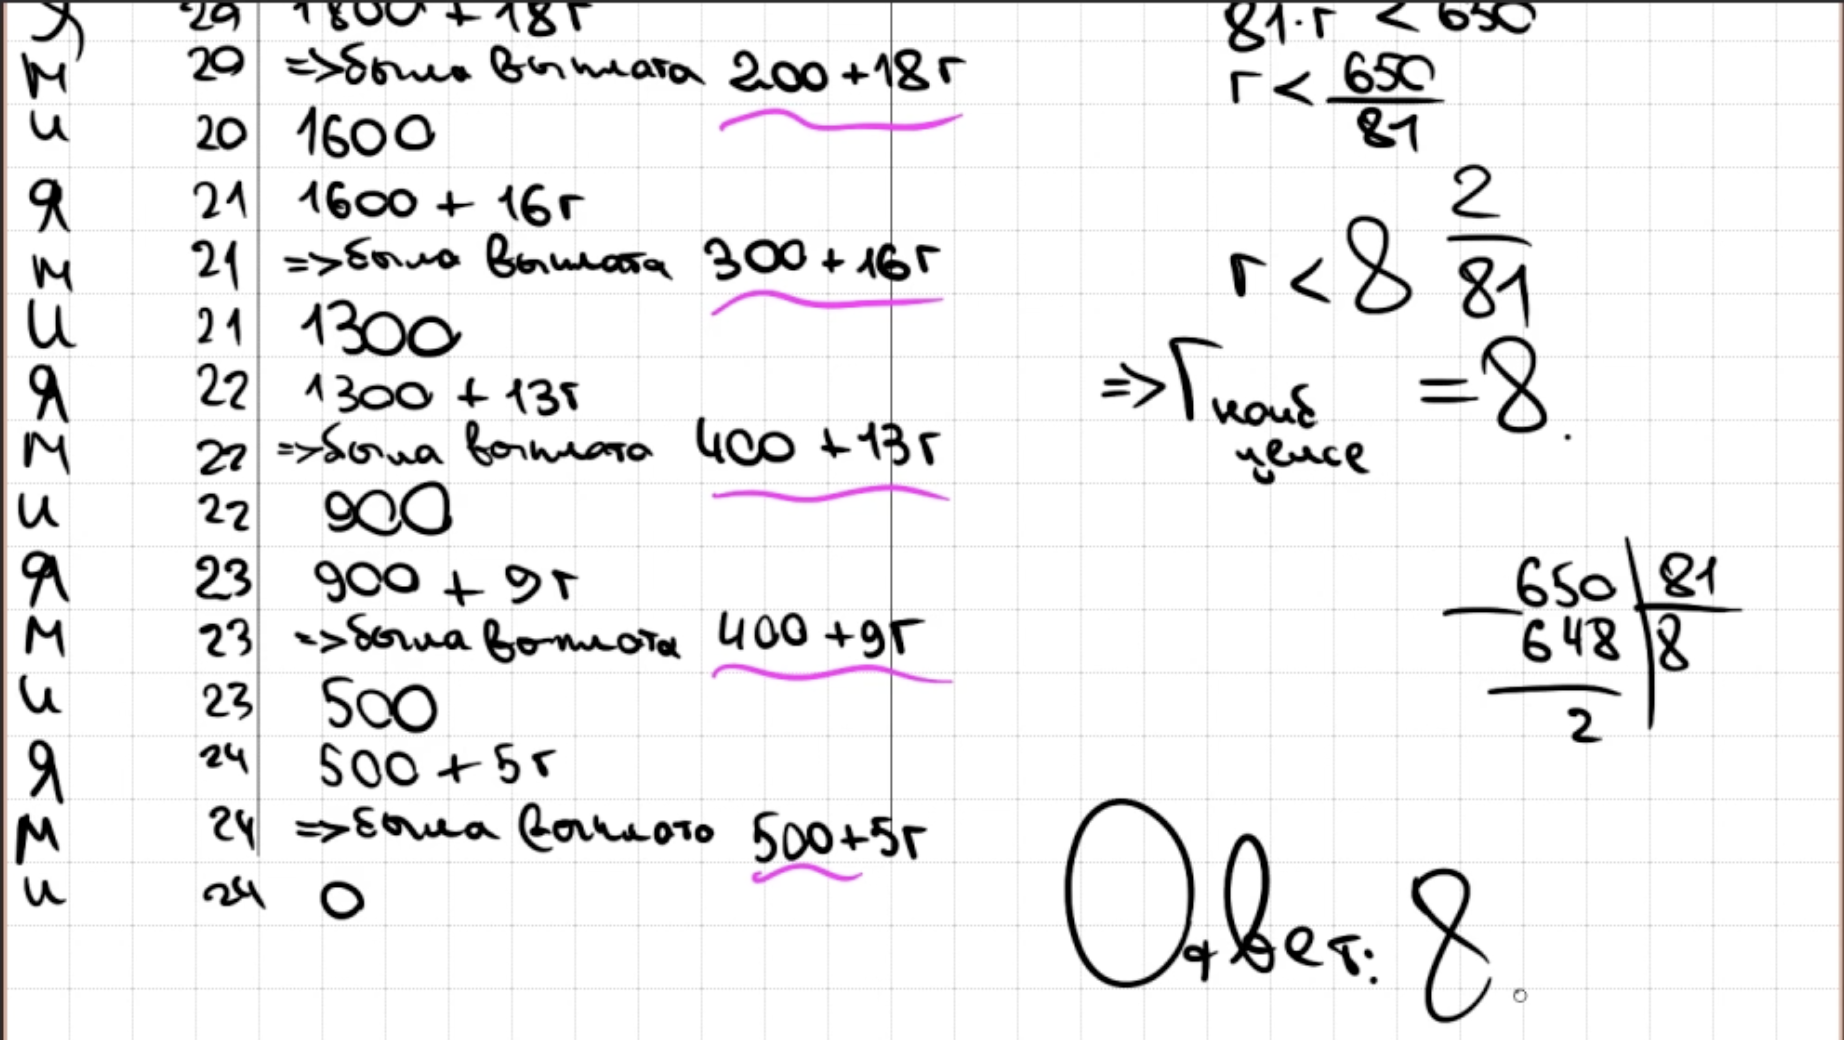 Я 20 1800 + 18r
М 20 =>была выплата 200+18r
И 20 1600
Я 21 1600 + 16r
М 21 =>была выплата 300+16r
И 21 1300
Я 22 1300 + 13r
М 22 =>была выплата 400+13r
И 22 900
Я 23 900 + 9r
М 23 =>была выплата 400+9r
И 23 500
Я 24 500 + 5r
М 24 =>была выплата 500+5r
И 24 0
81·r < 650
r < 650/81
r < 8 2/81
=> r наиб целое = 8.
650 | 81
648 | 8
2
Ответ: 8.